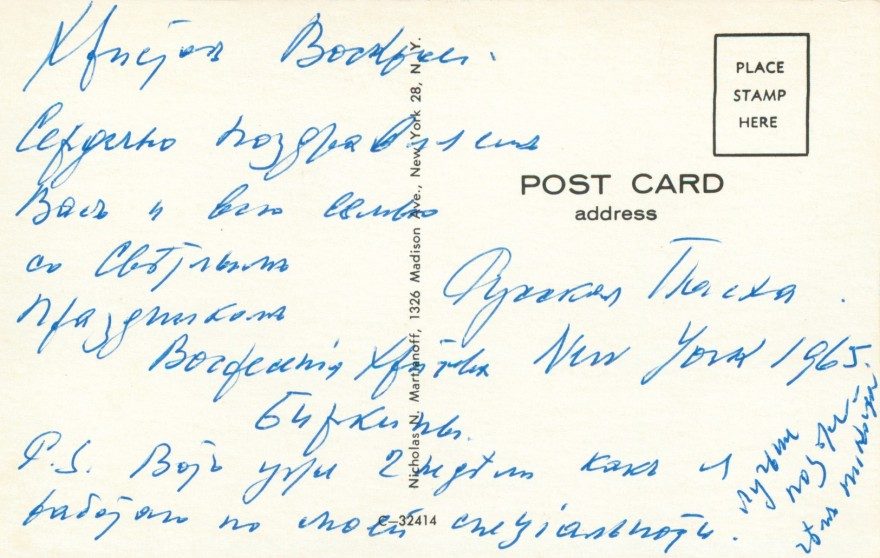 Христосъ Воскресъ.
Сердечно поздравляемъ
Васъ и всю семью
со Свѣтлымъ
Праздникомъ
Воскресенія Христова
Биркины.
P.S. Вотъ уже 2 недѣли какъ я
работаю по моей спеціальности.
POST CARD
address
PLACE
STAMP
HERE
Русская Пасха.
New York 1965
Nicholas N. Martianoff, 1326 Madison Ave., New York 28, N. Y.
C-32414